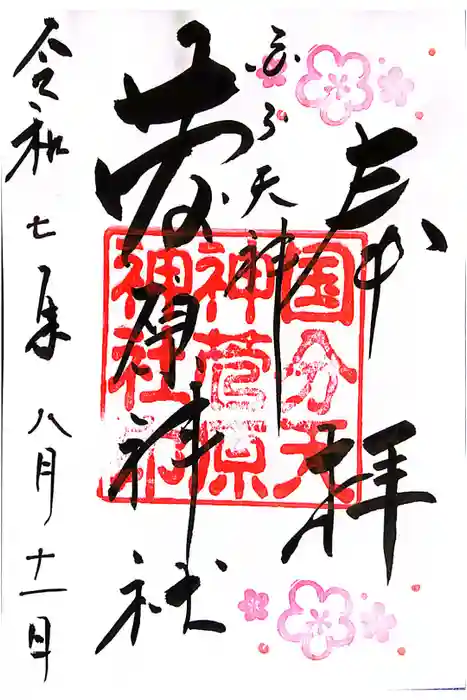 奉拝
天神
菅原神社
令和七年八月十一日
国分天
神菅原
神社印